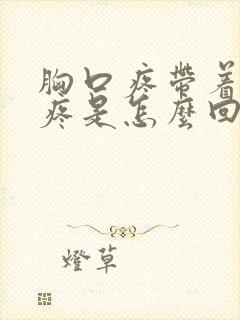 胸口疼帶着
疼是怎麼回
燈草